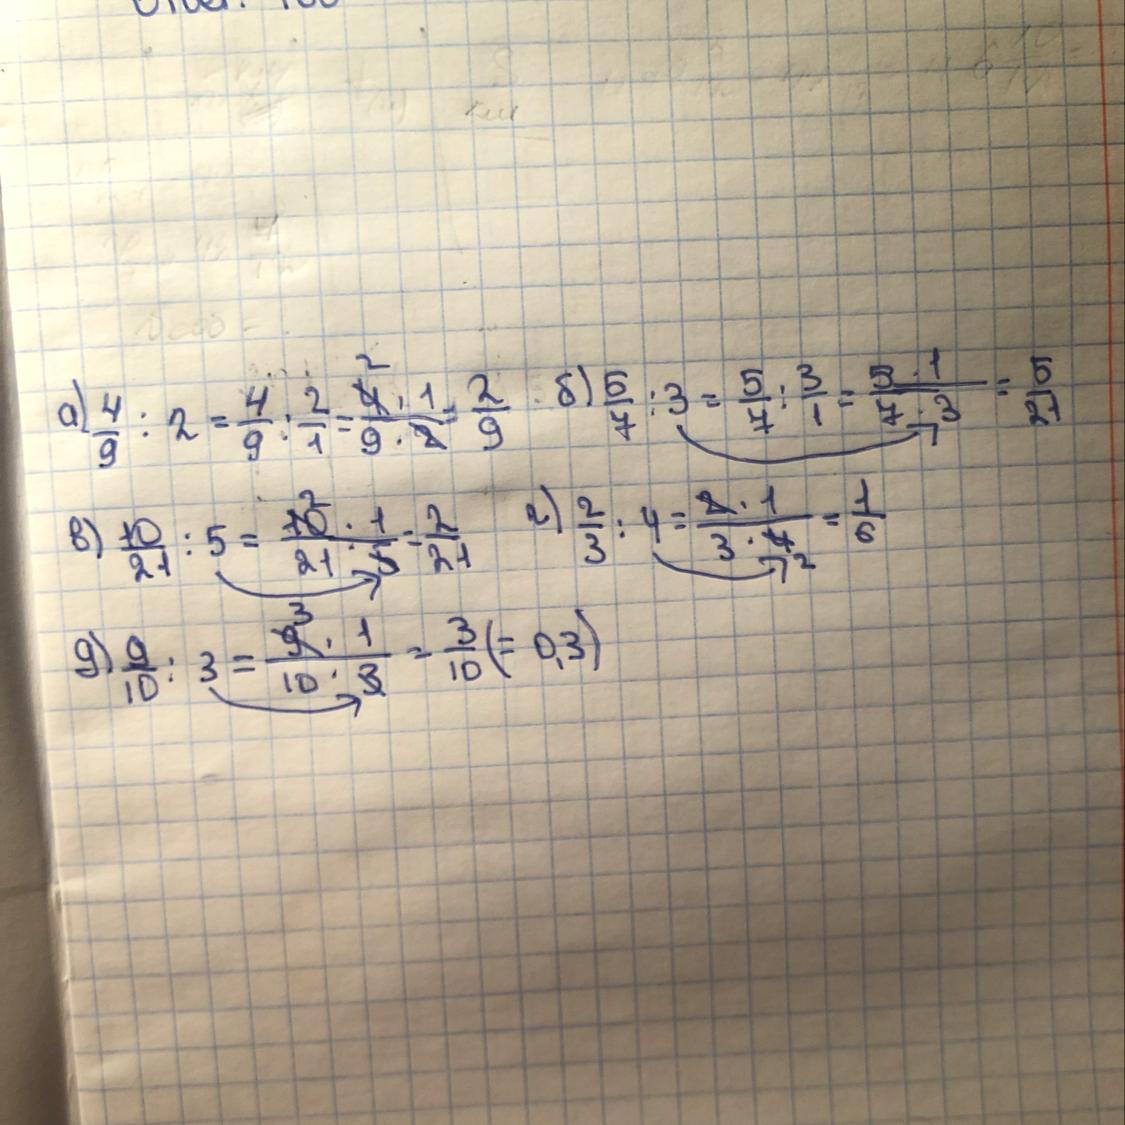 Ответ: 100
а) 4/9 : 2 = 4/9 : 2/1 = 4·1/9·2 = 2/9 б) 5/7 : 3 = 5/7 : 3/1 = 5·1/7·3 = 5/21
в) 10/21 : 5 = 10·1/21·5 = 2/21 г) 2/3 : 4 = 2·1/3·4 = 1/6
д) 9/10 : 3 = 9·1/10·3 = 3/10 (= 0,3)